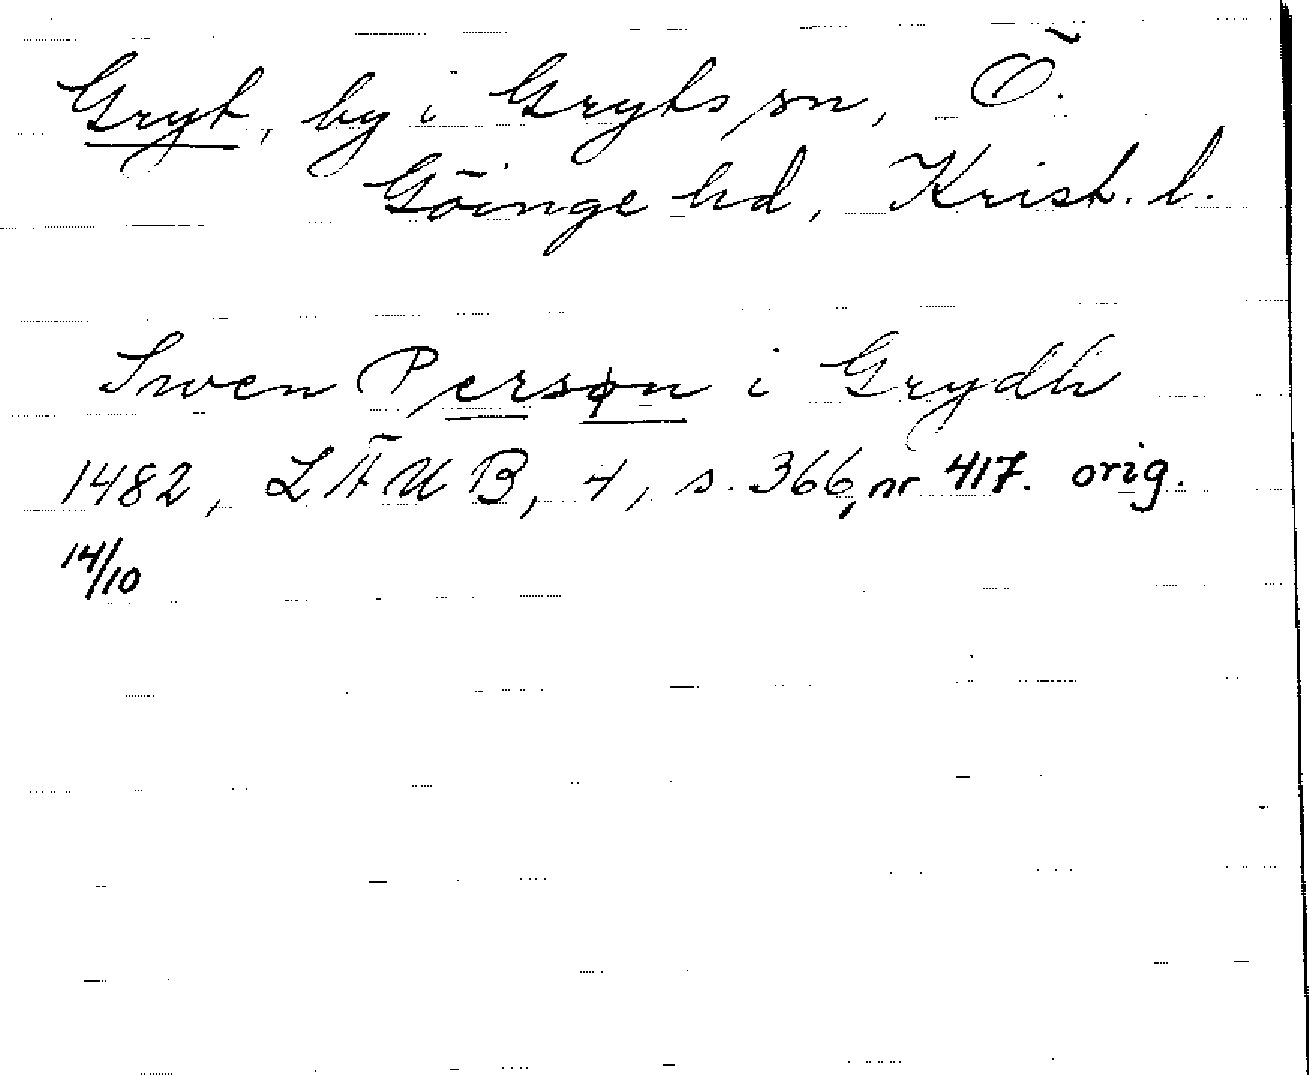 Gryt, by i Gryts sn, Ö.
Göinge hd, Krist. l.
Swen Persøn i Grydh
1482, LÄUB, 4, s. 366, nr 417. orig.
14/10